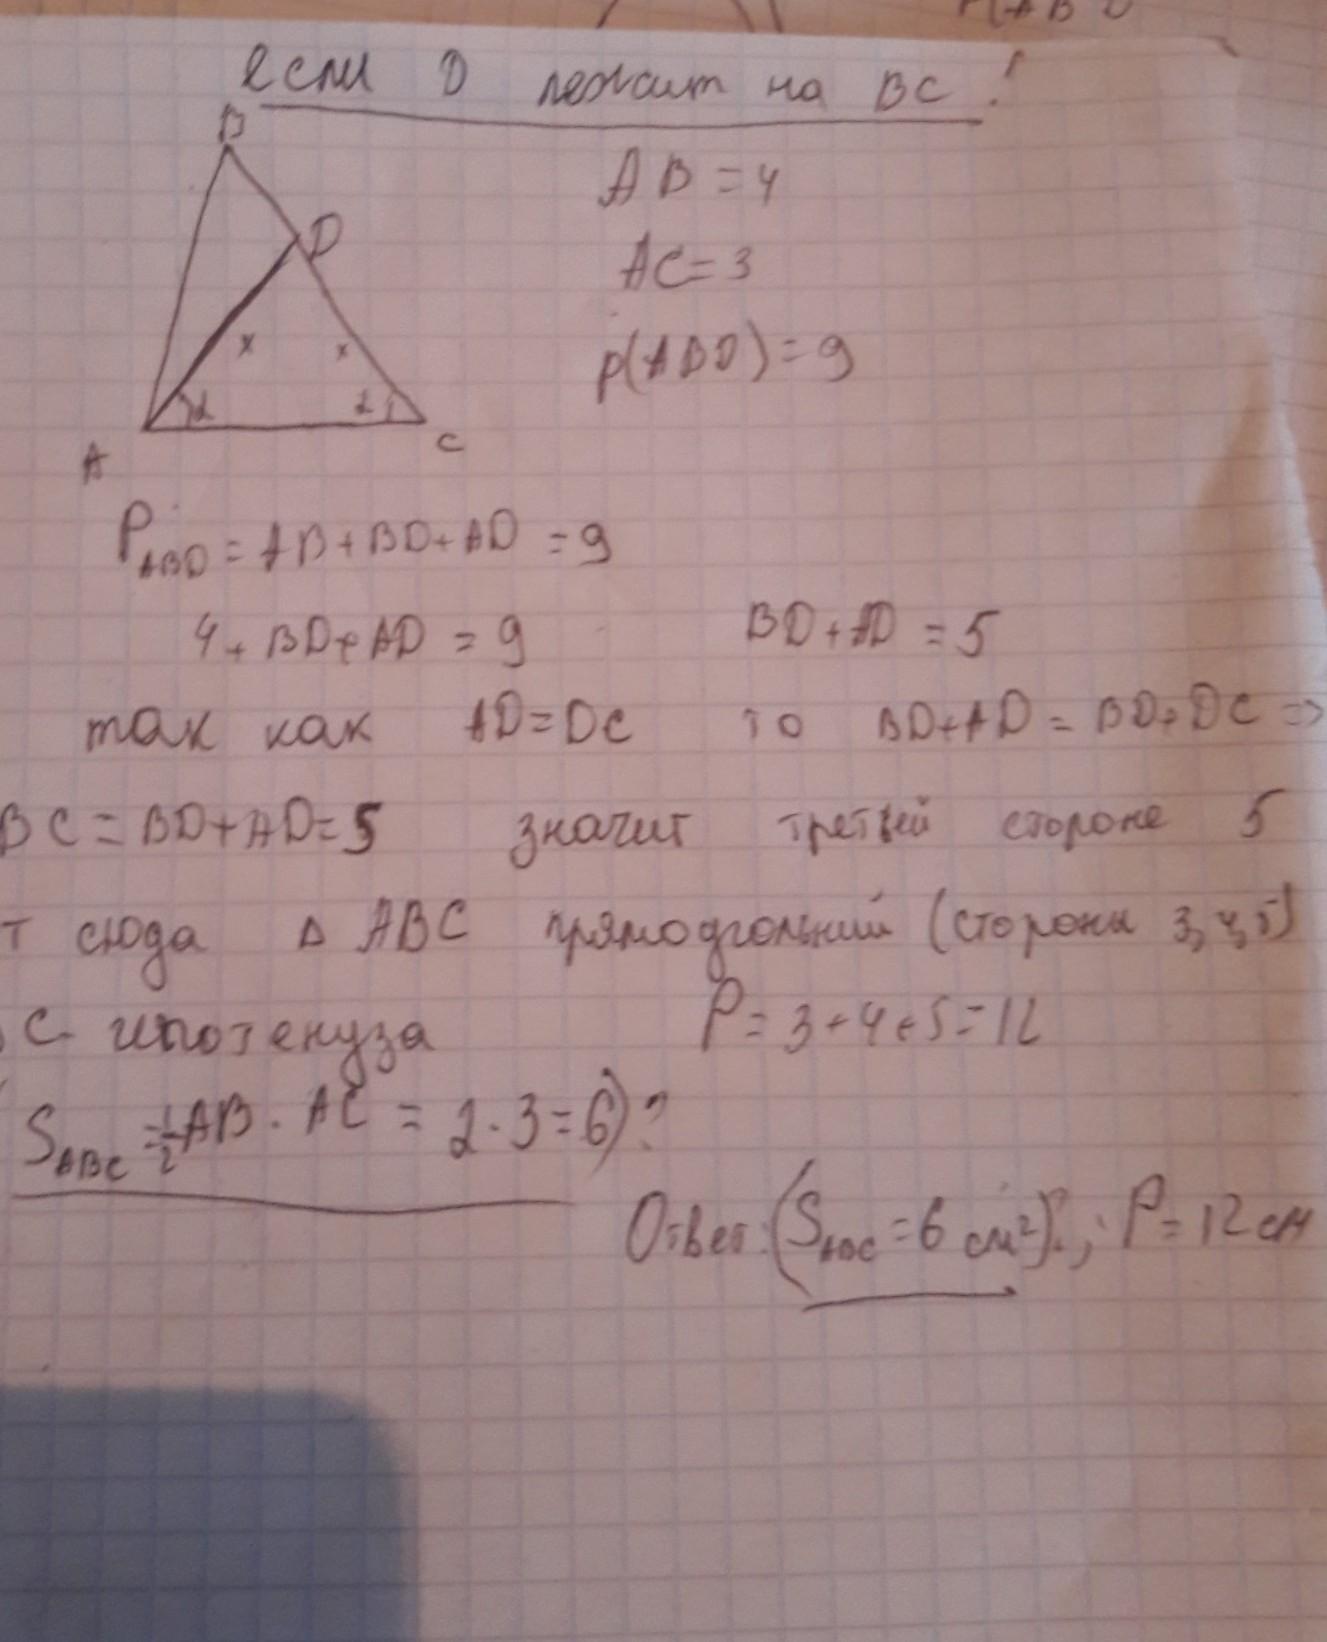 если D лежит на BC!
B
D
x
x
α
α
A
C
AB = 4
AC = 3
p(ABD) = 9
P ABD = AB + BD + AD = 9
4 + BD + AD = 9
BD + AD = 5
так как AD = DC то BD + AD = BD + DC =>
BC = BD + AD = 5 значит третьей стороне 5
т сюда Δ ABC прямоугольний (стороны 3, 4, 5)
C гипотенуза
P = 3 + 4 + 5 = 12
S ABC = 1/2 AB · AC = 2 · 3 = 6)?
Ответ: (S = 6 см²)?; P = 12 см